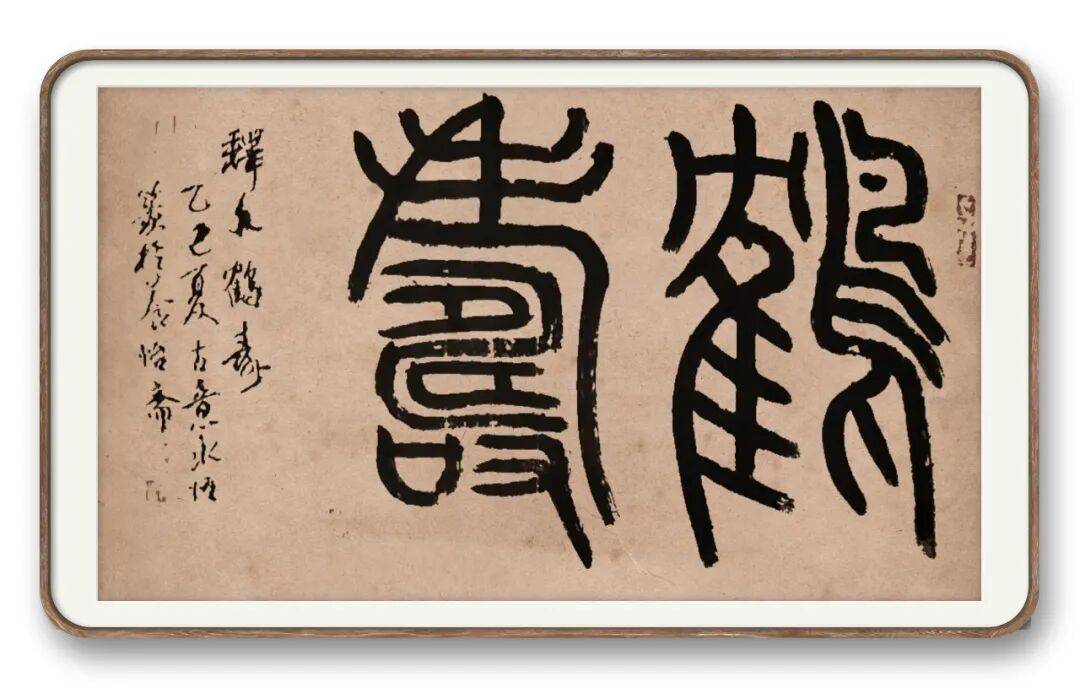 鶴壽
釋文鶴壽
乙巳夏古意永恒
篆於居怡齋